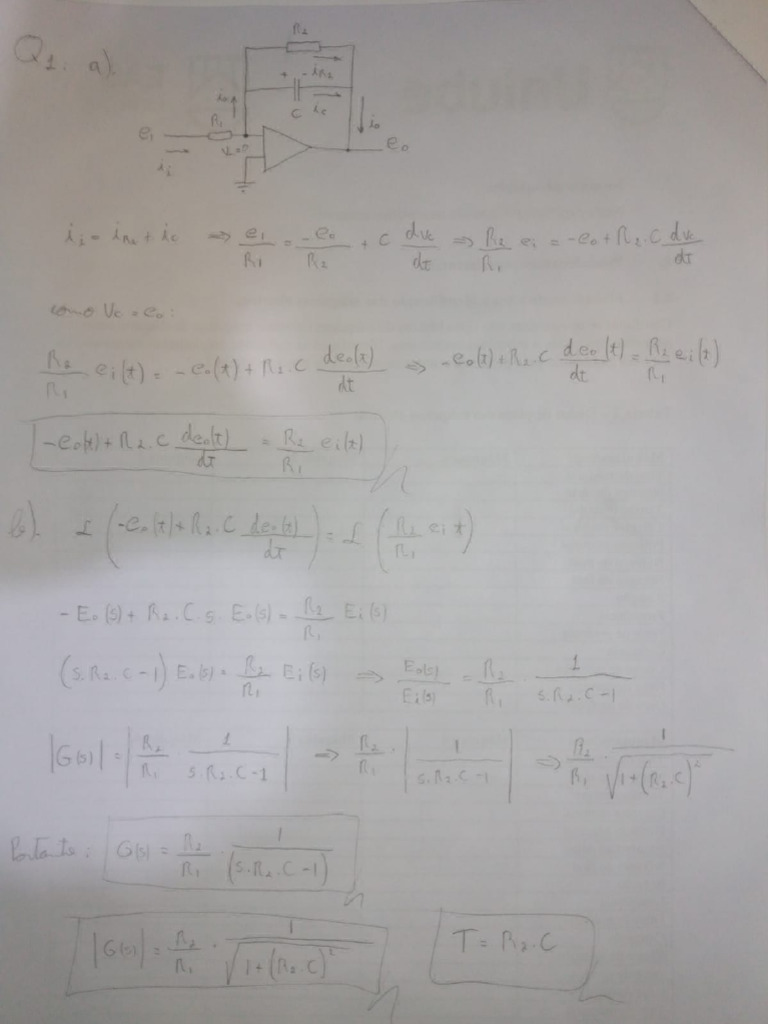 Q1. a).
R2
iR2
+ -
C
ic
io
R1
e1
ii
eo
ii = iR2 + ic ⇒ e1/R1 = -eo/R2 + C dvc/dt ⇒ R2/R1 ei = -eo + R2.C dvc/dt
como Vc = eo:
R2/R1 ei(t) = -eo(t) + R2.C deo(t)/dt ⇒ -eo(t) + R2.C deo(t)/dt = R2/R1 ei(t)
-eo(t) + R2.C deo(t)/dt = R2/R1 ei(t)
b). £ (-eo(t) + R2.C deo(t)/dt) = £ (R2/R1 ei t)
-Eo(s) + R2.C.s.Eo(s) = R2/R1 Ei(s)
(s.R2.C-1) Eo(s) = R2/R1 Ei(s) ⇒ Eo(s)/Ei(s) = R2/R1 . 1/(s.R2.C-1)
|G(s)| = |R2/R1 . 1/(s.R2.C-1)| ⇒ R2/R1 . |1/(s.R2.C-1)| ⇒ R2/R1 . 1/√(1+(R2.C)²)
Portanto: G(s) = R2/R1 . 1/(s.R2.C-1)
|G(s)| = R2/R1 . 1/√(1+(R2.C)²) T = R2.C